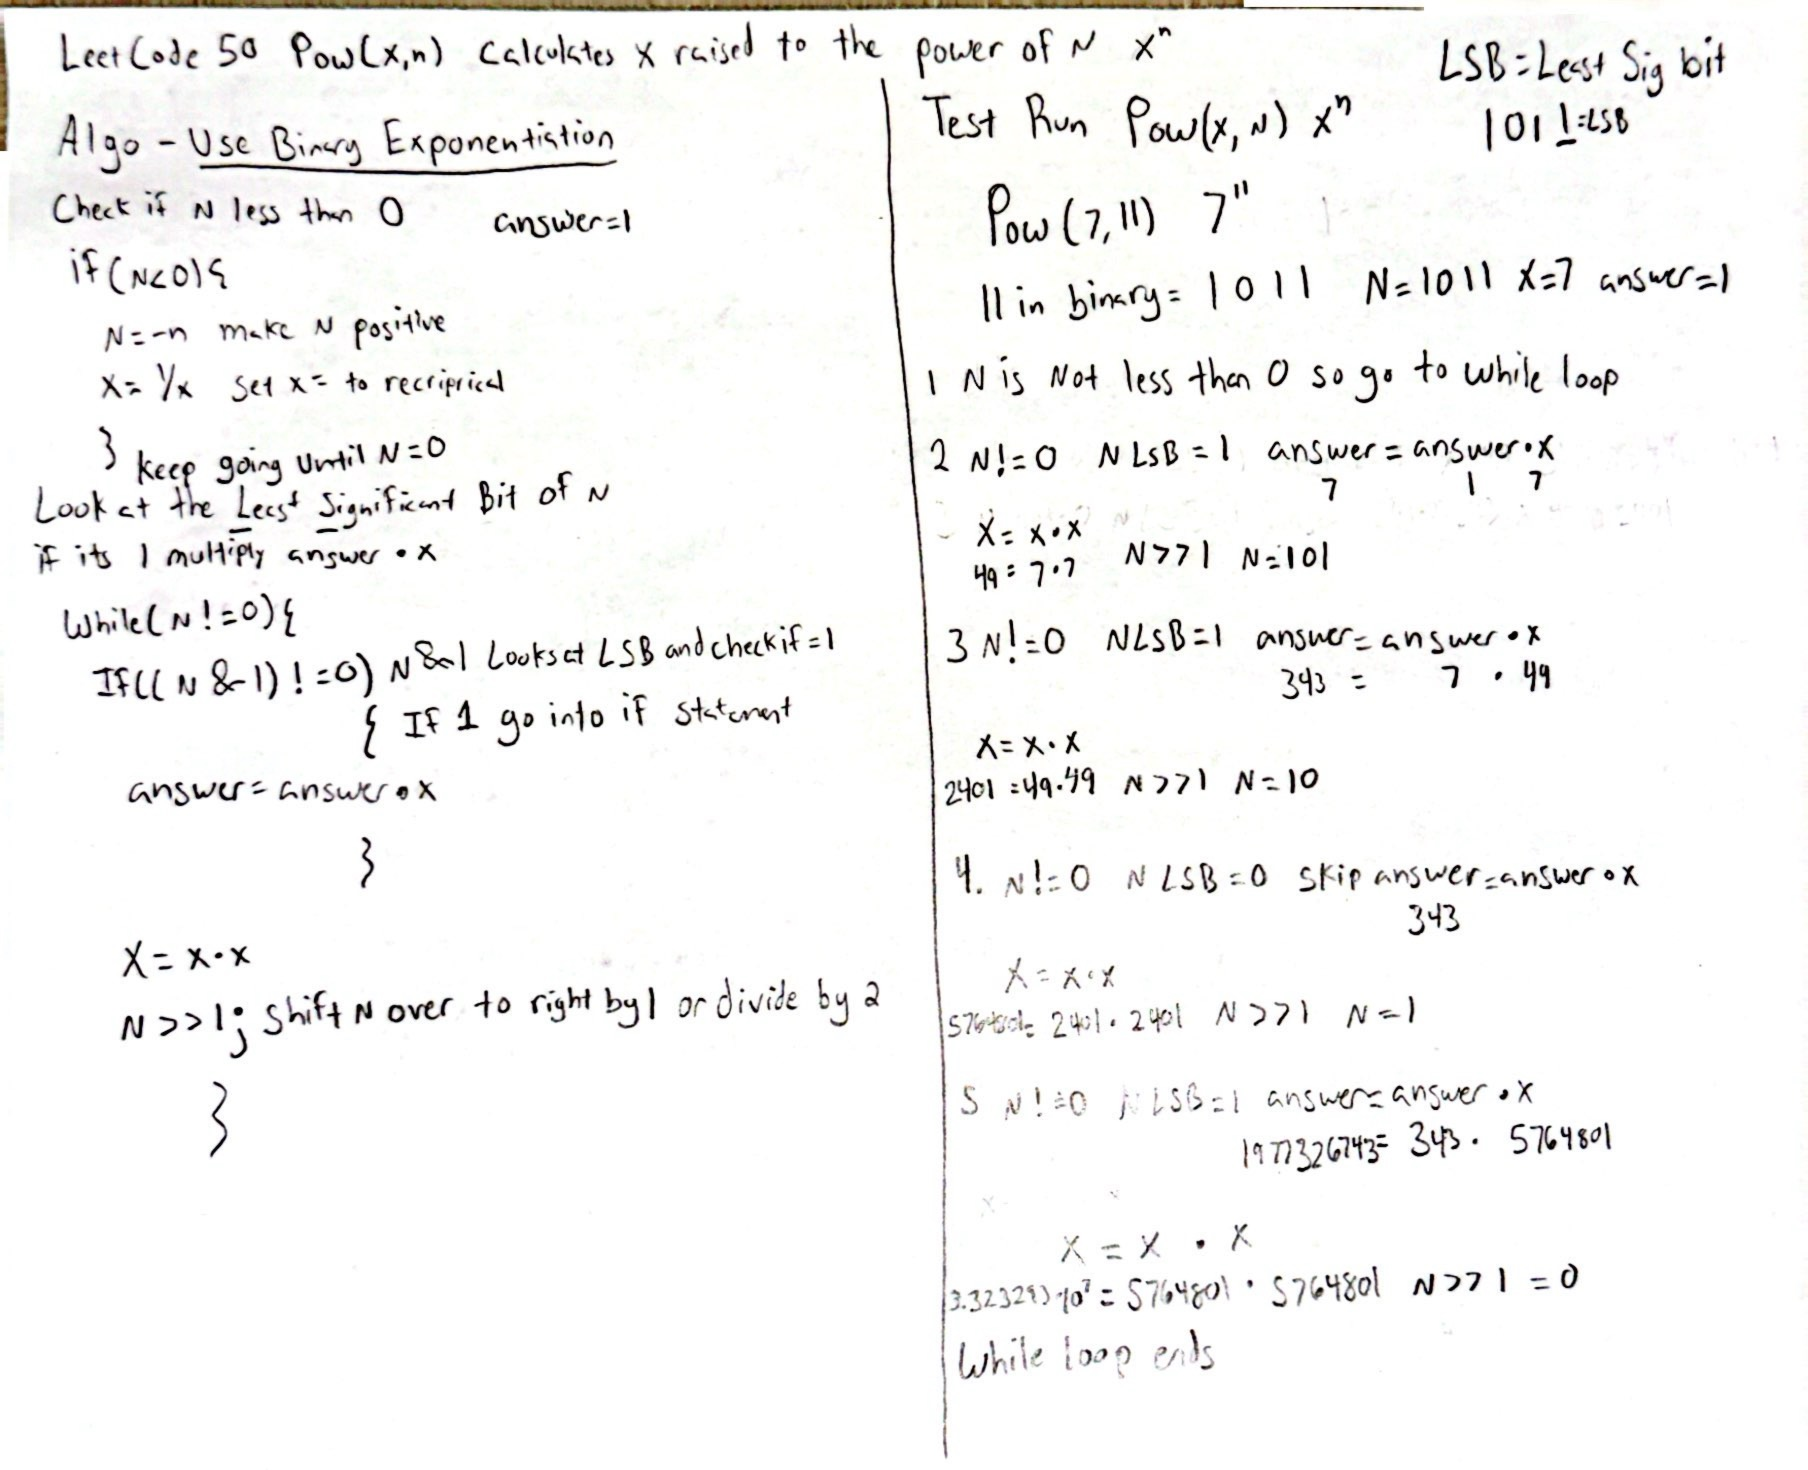 LeetCode 50 Pow(x,n) Calculates x raised to the power of N xⁿ
LSB=Least Sig bit
1011=LSB
Algo - Use Binary Exponentiation
Check if N less than 0 answer=1
if(N<0){
N=-n make N positive
X= 1/x Set x= to recriprical
}
Keep going Until N=0
Look at the Least Significant Bit of N
if its 1 multiply answer • x
While(N!=0){
If((N&1)!=0) N&1 Looks at LSB and check if=1
{ If 1 go into if Statement
answer=answer•x
}
X=x•x
N>>1; Shift N over to right by 1 or divide by 2
}
Test Run Pow(x,N) xⁿ
Pow(7,11) 7¹¹
11 in binary= 1011 N=1011 X=7 answer=1
1 N is Not less than 0 so go to While loop
2 N!=0 N LSB=1 answer=answer•x
7 1 7
X=x•x
49=7•7 N>>1 N=101
3 N!=0 NLSB=1 answer=answer•x
343 = 7 • 49
X=x•x
2401=49•49 N>>1 N=10
4. N!=0 N LSB=0 Skip answer=answer•x
343
X=x•x
5764801=2401•2401 N>>1 N=1
5 N!=0 N LSB=1 answer=answer•x
1977326743=343• 5764801
X=X • X
=5764801•5764801 N>>1=0
While loop ends